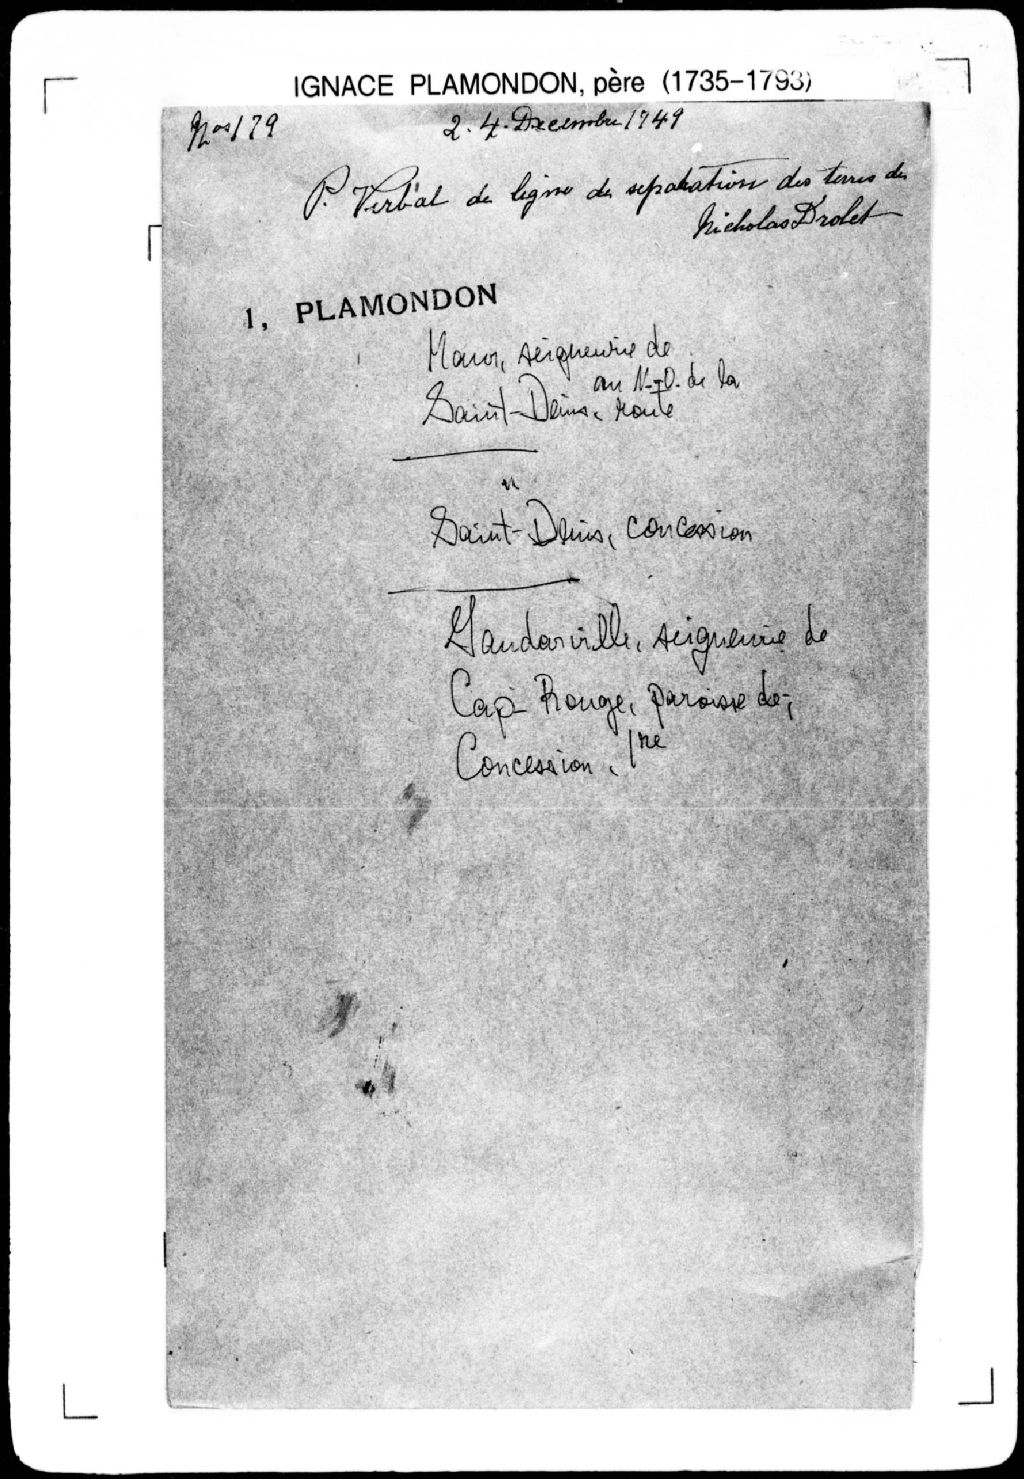 IGNACE PLAMONDON, père (1735-1793)
Nos 179
2. 4. Decembre 1749
P. Verbal de ligne de separation des terres de
Nicholas Drolet
1, PLAMONDON
Maur, seigneurie de
au N.-O. de la
Saint-Denis, route
"
Saint-Denis, concession
Gaudarville, seigneurie de
Cap-Rouge, paroisse de;
Concession, 1re